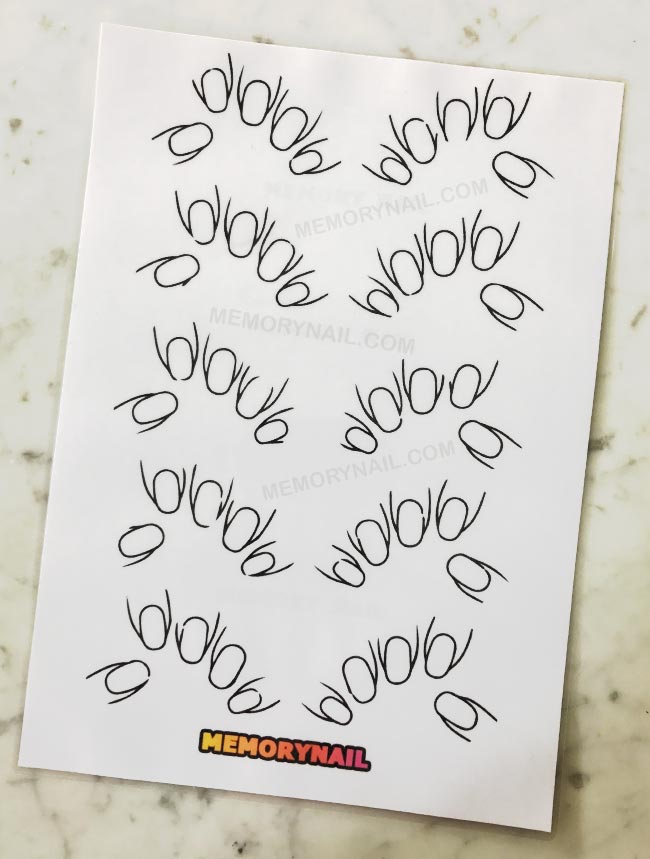 MEMORYNAIL.COM
MEMORYNAIL.COM
MEMORYNAIL.COM
MEMORYNAIL